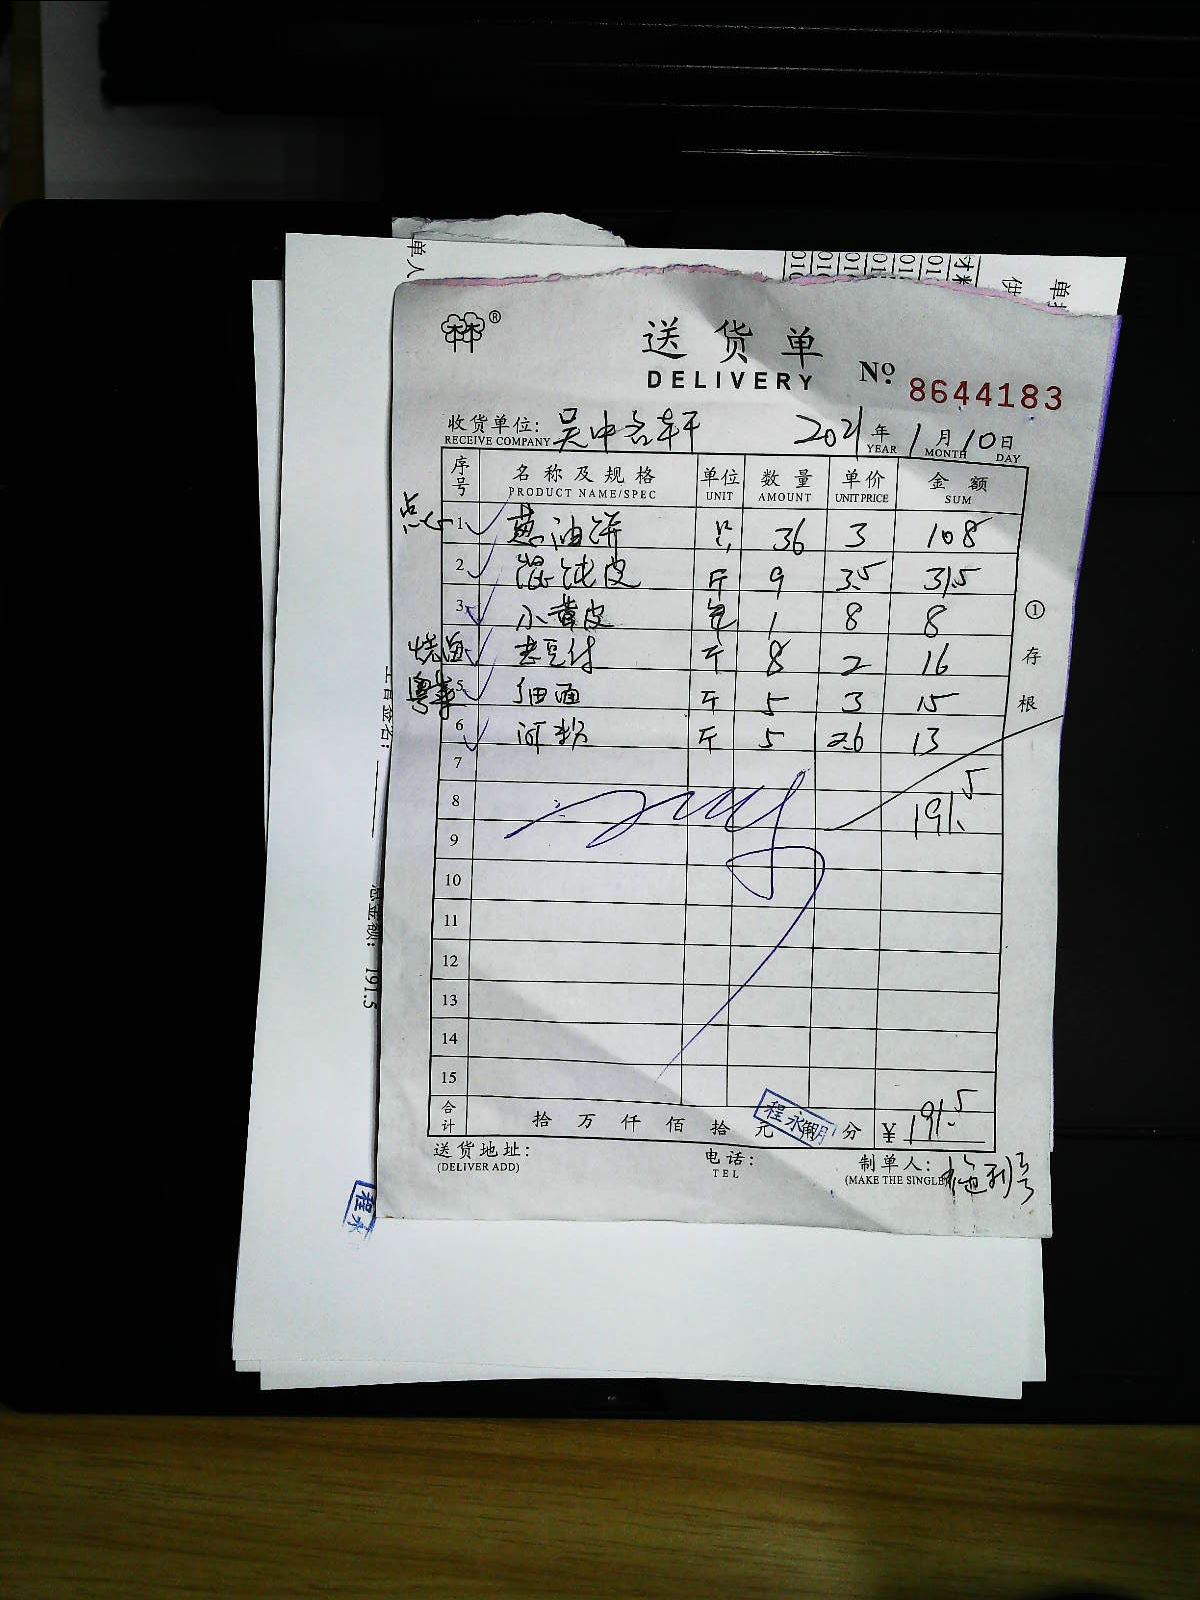 送货单
DELIVERY
№ 8644183
收货单位: 吴中名轩 2021年1月10日
RECEIVE COMPANY YEAR MONTH DAY
序号 名称及规格 单位 数量 单价 金额
PRODUCT NAME/SPEC UNIT AMOUNT UNIT PRICE SUM
点心 1 葱油饼 只 36 3 108
2 混沌皮 斤 9 3.5 31.5
3 小黄皮 包 1 8 8
老豆付 斤 8 2 16
粤菜 5 细面 斤 5 3 15
6 河粉 斤 5 2.6 13
7
8 191.5
9
10
11
12
13
14
15
合计 拾 万 仟 佰 拾 元 角 分 ¥ 191.5
程永
送货地址: 电话: 制单人:
(DELIVER ADD) TEL (MAKE THE SINGLE
①存根
®
单人
供
总金额: 191.5
程永